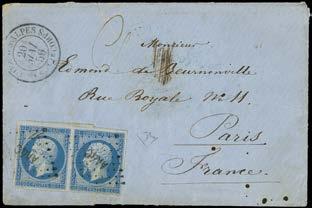 ALPES
20
MAI
Monsieur
Edmond de Bournonville
Rue Royale No 11
Paris
France